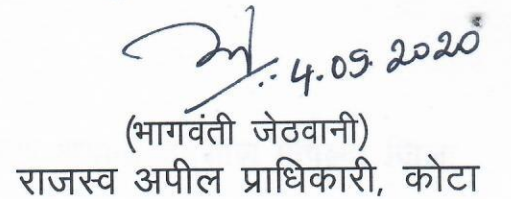 4.09.2020
(भागवंती जेठवानी)
राजस्व अपील प्राधिकारी, कोटा